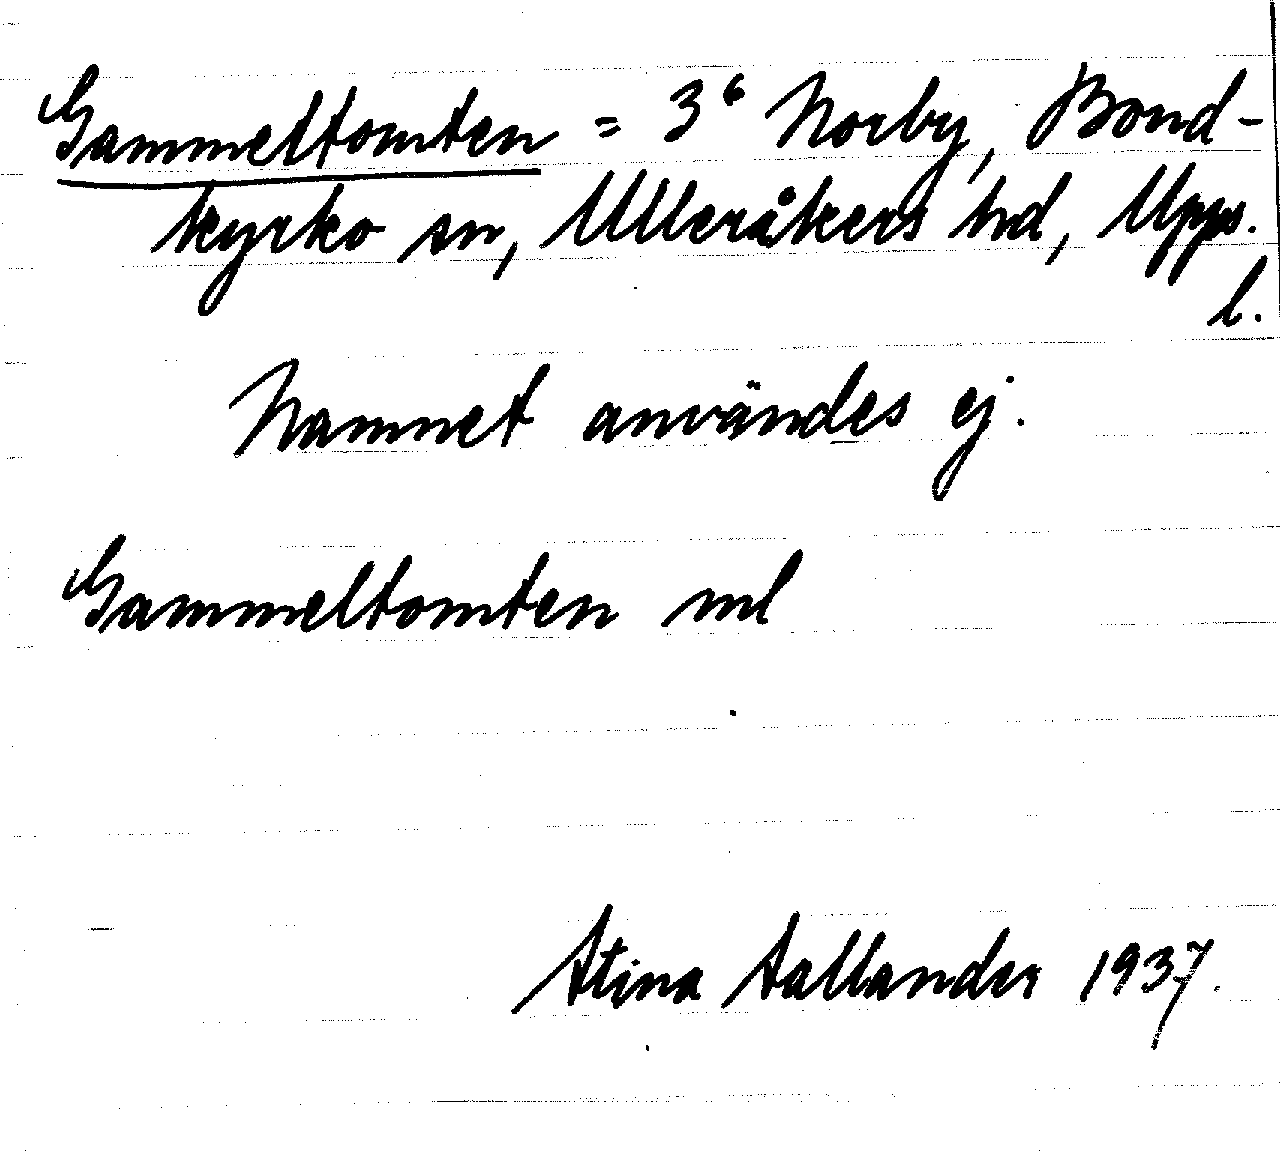 Gammeltomten = 3⁶ Norby, Bond-
kyrko sn, Ulleråkers hd, Upps.
l.
Namnet användes ej.
Gammeltomten ml
Stina Sallander 1937.